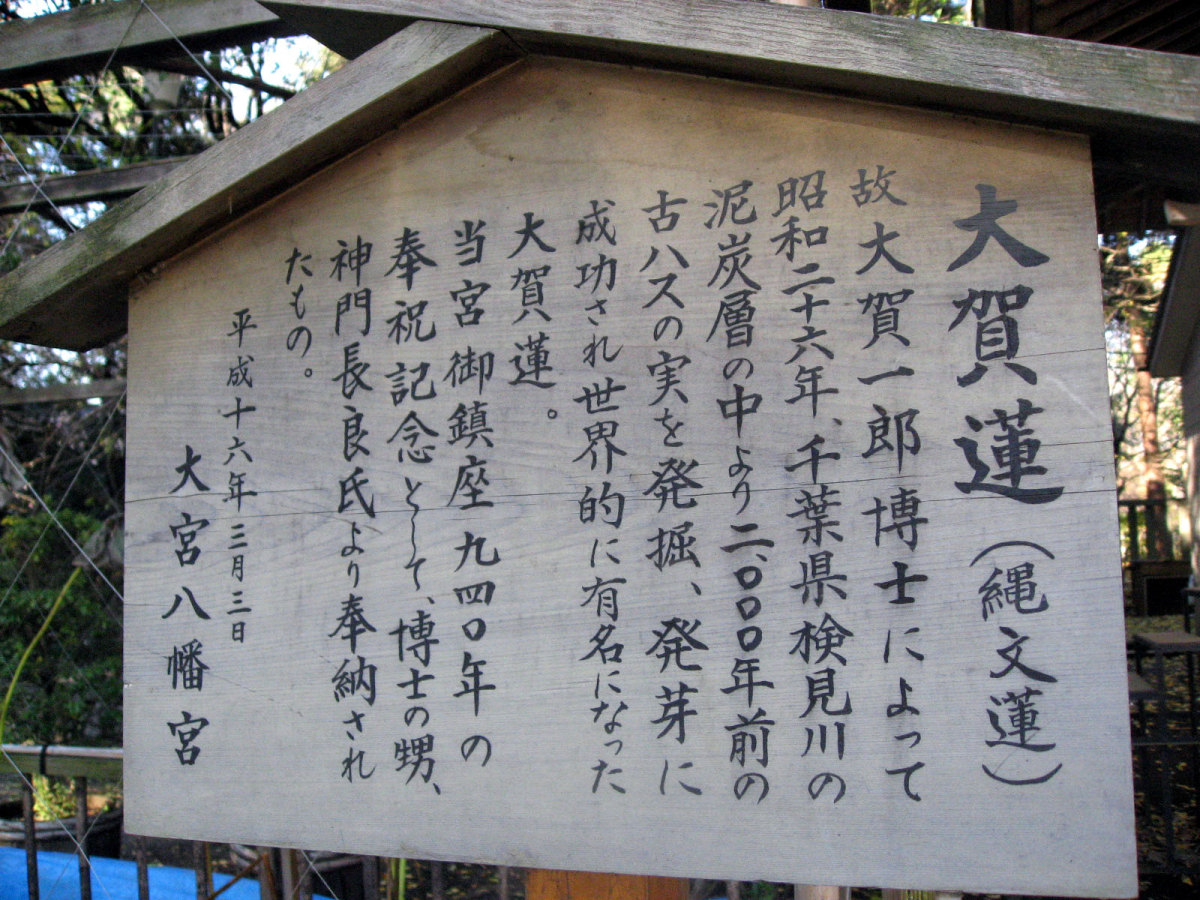 大賀蓮（縄文蓮）
故大賀一郎博士によって
昭和二十六年、千葉県検見川の
泥炭層の中より二、〇〇〇年前の
古ハスの実を発掘、発芽に
成功され世界的に有名になった
大賀蓮。
当宮御鎮座九四〇年の
奉祝記念として、博士の甥、
神門長良氏より奉納され
たもの。
平成十六年三月三日
大宮八幡宮